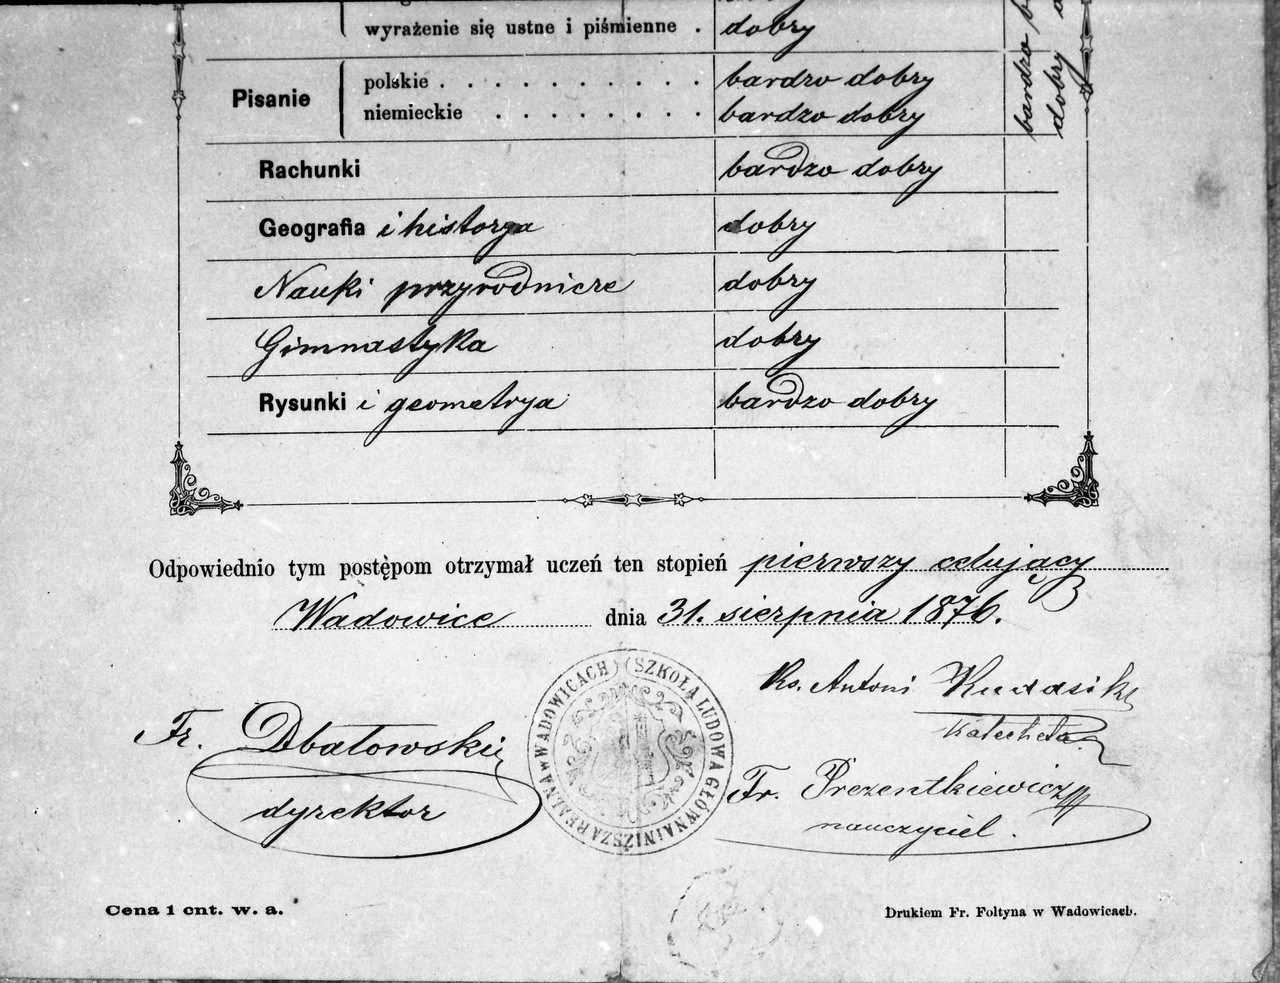 wyrażenie się ustne i piśmienne . dobry
Pisanie
polskie . . . . . . . . . . bardzo dobry
niemieckie . . . . . . . . bardzo dobry
bardzo
dobry
Rachunki bardzo dobry
Geografia i historya dobry
Nauki przyrodnicze dobry
Gimnastyka dobry
Rysunki i geometrya bardzo dobry
Odpowiednio tym postępom otrzymał uczeń ten stopień pierwszy celujący
Wadowice dnia 31. sierpnia 1876.
SZKOŁA LUDOWA GŁÓWNA I NIŻSZA REALNA W WADOWICACH
Ks. Antoni
Katecheta
Fr. Dbałowski
dyrektor
Fr. Prezentkiewicz
nauczyciel.
Cena 1 cnt. w. a.
Drukiem Fr. Foltyna w Wadowicach.